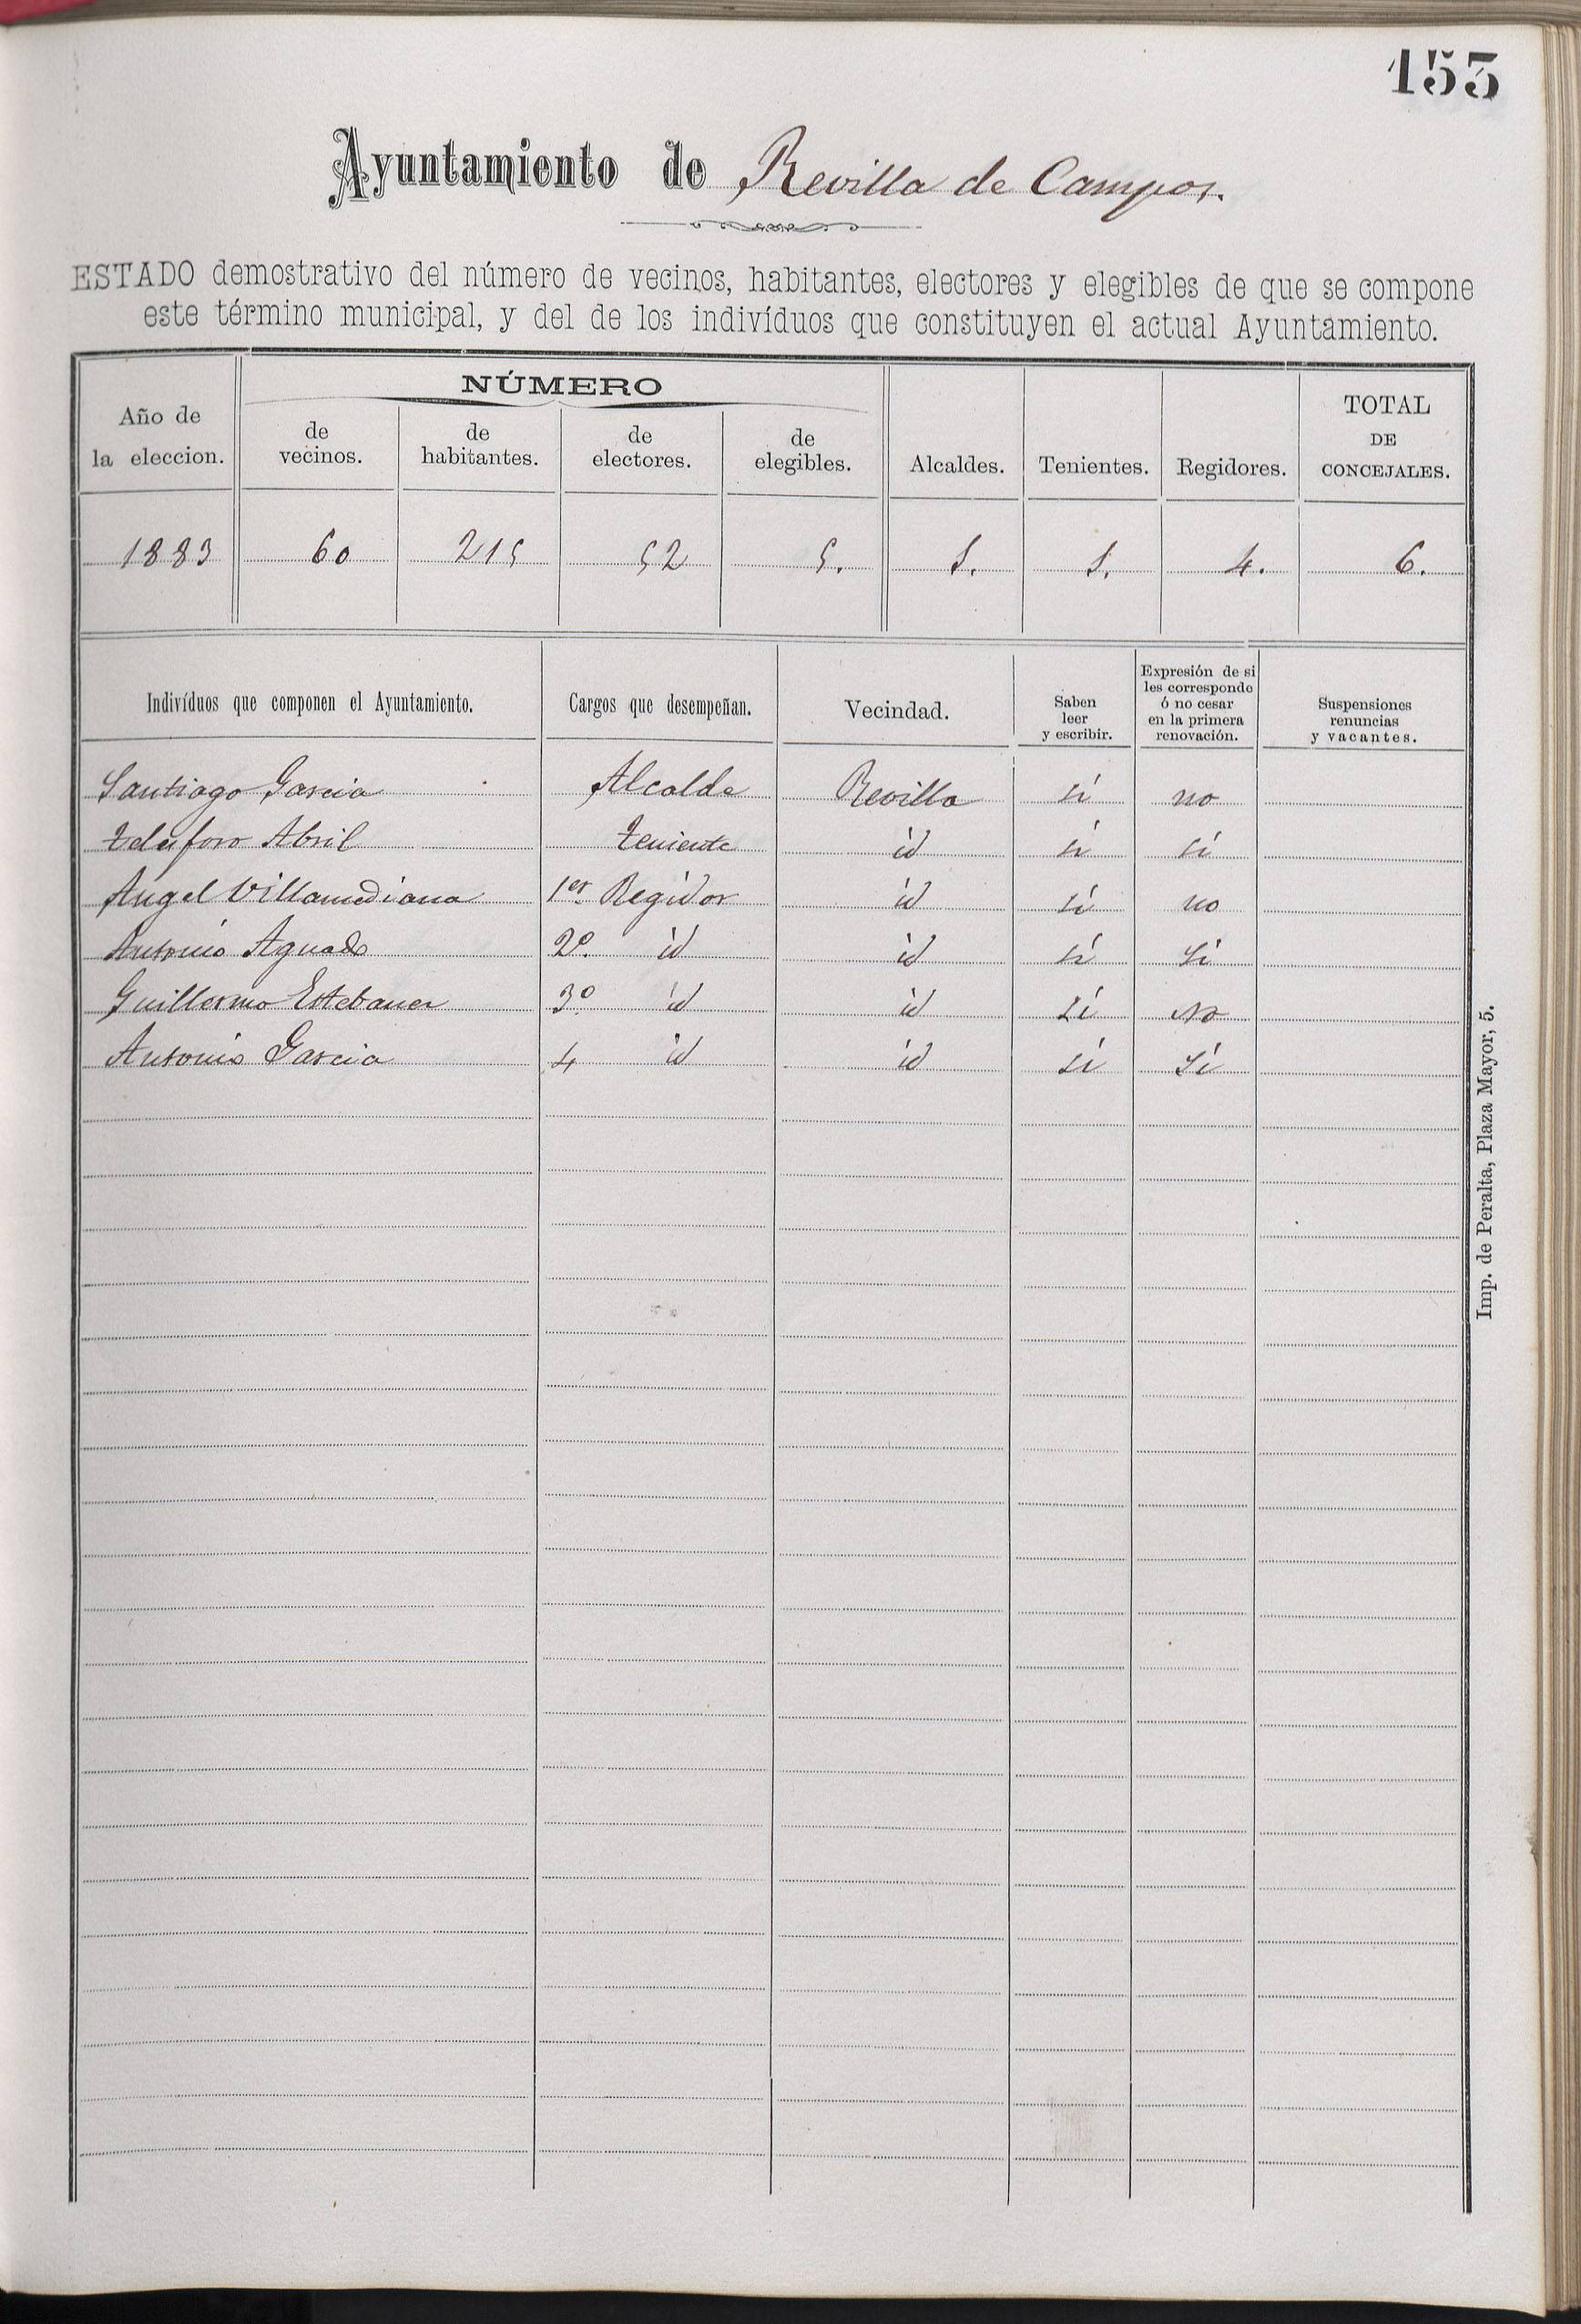 153
Ayuntamiento de Revilla de Campos.
ESTADO demostrativo del número de vecinos, habitantes, electores y elegibles de que se compone
este término municipal, y del de los indivíduos que constituyen el actual Ayuntamiento.
Año de la eleccion. NÚMERO de vecinos. de habitantes. de electores. de elegibles. Alcaldes. Tenientes. Regidores. TOTAL DE CONCEJALES.
1883 60 215 52 5. 1. 1. 4. 6.
Indivíduos que componen el Ayuntamiento. Cargos que desempeñan. Vecindad. Saben leer y escribir. Expresión de si les corresponde ó no cesar en la primera renovación. Suspensiones renuncias y vacantes.
Santiago Garcia Alcalde Revilla si no
Telesforo Abril Teniente id si si
Angel Villamediana 1er Regidor id si no
Antonio Aguado 2º. id id si Si
Guillermo Estebanez 3º. id id si no
Antonio Garcia 4 id id si Si
Imp. de Peralta, Plaza Mayor, 5.